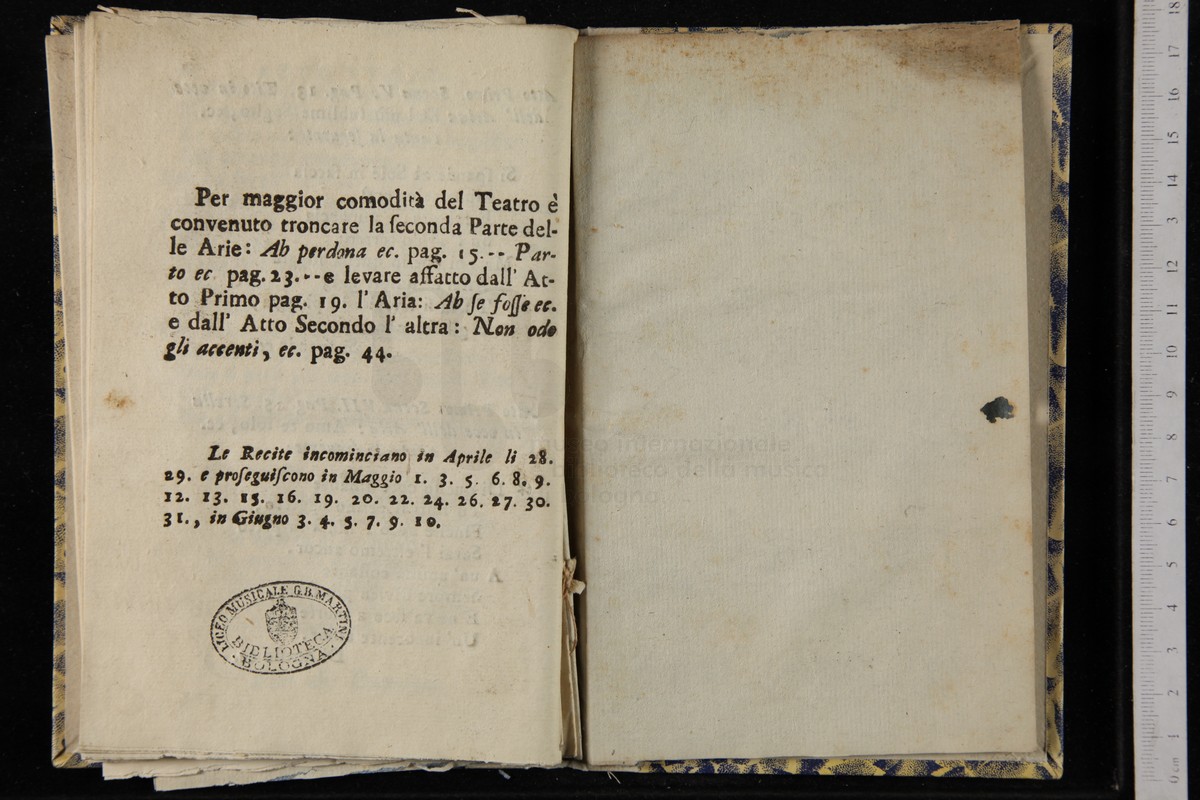 Per maggior comodità del Teatro è
convenuto troncare la ſeconda Parte del-
le Arie: Ah perdona ec. pag. 15.-- Par-
to ec pag. 23.--e levare affatto dall' At-
to Primo pag. 19. l' Aria: Ah ſe foſſe ec.
e dall' Atto Secondo l' altra: Non odo
gli accenti, ec. pag. 44.
Le Recite incominciano in Aprile li 28.
29. e proſeguiſcono in Maggio 1. 3. 5. 6. 8. 9.
12. 13. 15. 16. 19. 20. 22. 24. 26. 27. 30.
31., in Giugno 3. 4. 5. 7. 9. 10.
LICEO MUSICALE G.B. MARTINI
BIBLIOTECA
· BOLOGNA ·
museo internazionale
biblioteca della musica
bologna
18
17
16
15
14
13
12
11
10
9
8
7
6
5
4
3
2
1
0 cm